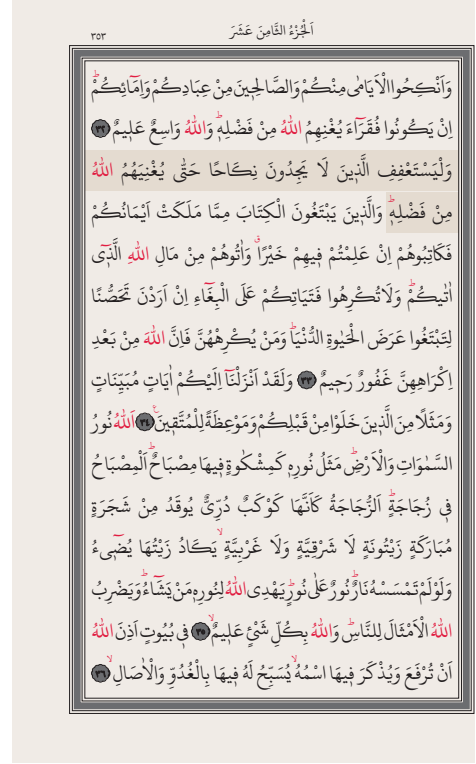 اَلْجُزْءُ الثَّامِنَ عَشَرَ
٣٥٣
وَاَنْكِحُوا الْاَيَامٰى مِنْكُمْ وَالصَّالِحٖينَ مِنْ عِبَادِكُمْ وَاِمَٓائِكُمْۜ
اِنْ يَكُونُوا فُقَرَٓاءَ يُغْنِهِمُ اللّٰهُ مِنْ فَضْلِهٖۜ وَاللّٰهُ وَاسِعٌ عَلٖيمٌ ﴿٣٢﴾
وَلْيَسْتَعْفِفِ الَّذٖينَ لَا يَجِدُونَ نِكَاحًا حَتّٰى يُغْنِيَهُمُ اللّٰهُ
مِنْ فَضْلِهٖۜ وَالَّذٖينَ يَبْتَغُونَ الْكِتَابَ مِمَّا مَلَكَتْ اَيْمَانُكُمْ
فَكَاتِبُوهُمْ اِنْ عَلِمْتُمْ فٖيهِمْ خَيْرًاۗ وَاٰتُوهُمْ مِنْ مَالِ اللّٰهِ الَّذٖٓي
اٰتٰيكُمْۜ وَلَا تُكْرِهُوا فَتَيَاتِكُمْ عَلَى الْبِغَٓاءِ اِنْ اَرَدْنَ تَحَصُّنًا
لِتَبْتَغُوا عَرَضَ الْحَيٰوةِ الدُّنْيَاۜ وَمَنْ يُكْرِهْهُنَّ فَاِنَّ اللّٰهَ مِنْ بَعْدِ
اِكْرَاهِهِنَّ غَفُورٌ رَحٖيمٌ ﴿٣٣﴾ وَلَقَدْ اَنْزَلْنَٓا اِلَيْكُمْ اٰيَاتٍ مُبَيِّنَاتٍ
وَمَثَلًا مِنَ الَّذٖينَ خَلَوْا مِنْ قَبْلِكُمْ وَمَوْعِظَةً لِلْمُتَّقٖينَ۟ ﴿٣٤﴾ اَللّٰهُ نُورُ
السَّمٰوَاتِ وَالْاَرْضِۜ مَثَلُ نُورِهٖ كَمِشْكٰوةٍ فٖيهَا مِصْبَاحٌۜ اَلْمِصْبَاحُ
فٖي زُجَاجَةٍۜ اَلزُّجَاجَةُ كَاَنَّهَا كَوْكَبٌ دُرِّيٌّ يُوقَدُ مِنْ شَجَرَةٍ
مُبَارَكَةٍ زَيْتُونَةٍ لَا شَرْقِيَّةٍ وَلَا غَرْبِيَّةٍۙ يَكَادُ زَيْتُهَا يُضٖٓيءُ
وَلَوْ لَمْ تَمْسَسْهُ نَارٌۜ نُورٌ عَلٰى نُورٍۜ يَهْدِي اللّٰهُ لِنُورِهٖ مَنْ يَشَٓاءُۜ وَيَضْرِبُ
اللّٰهُ الْاَمْثَالَ لِلنَّاسِۜ وَاللّٰهُ بِكُلِّ شَيْءٍ عَلٖيمٌۙ ﴿٣٥﴾ فٖي بُيُوتٍ اَذِنَ اللّٰهُ
اَنْ تُرْفَعَ وَيُذْكَرَ فٖيهَا اسْمُهُۙ يُسَبِّحُ لَهُ فٖيهَا بِالْغُدُوِّ وَالْاٰصَالِۙ ﴿٣٦﴾